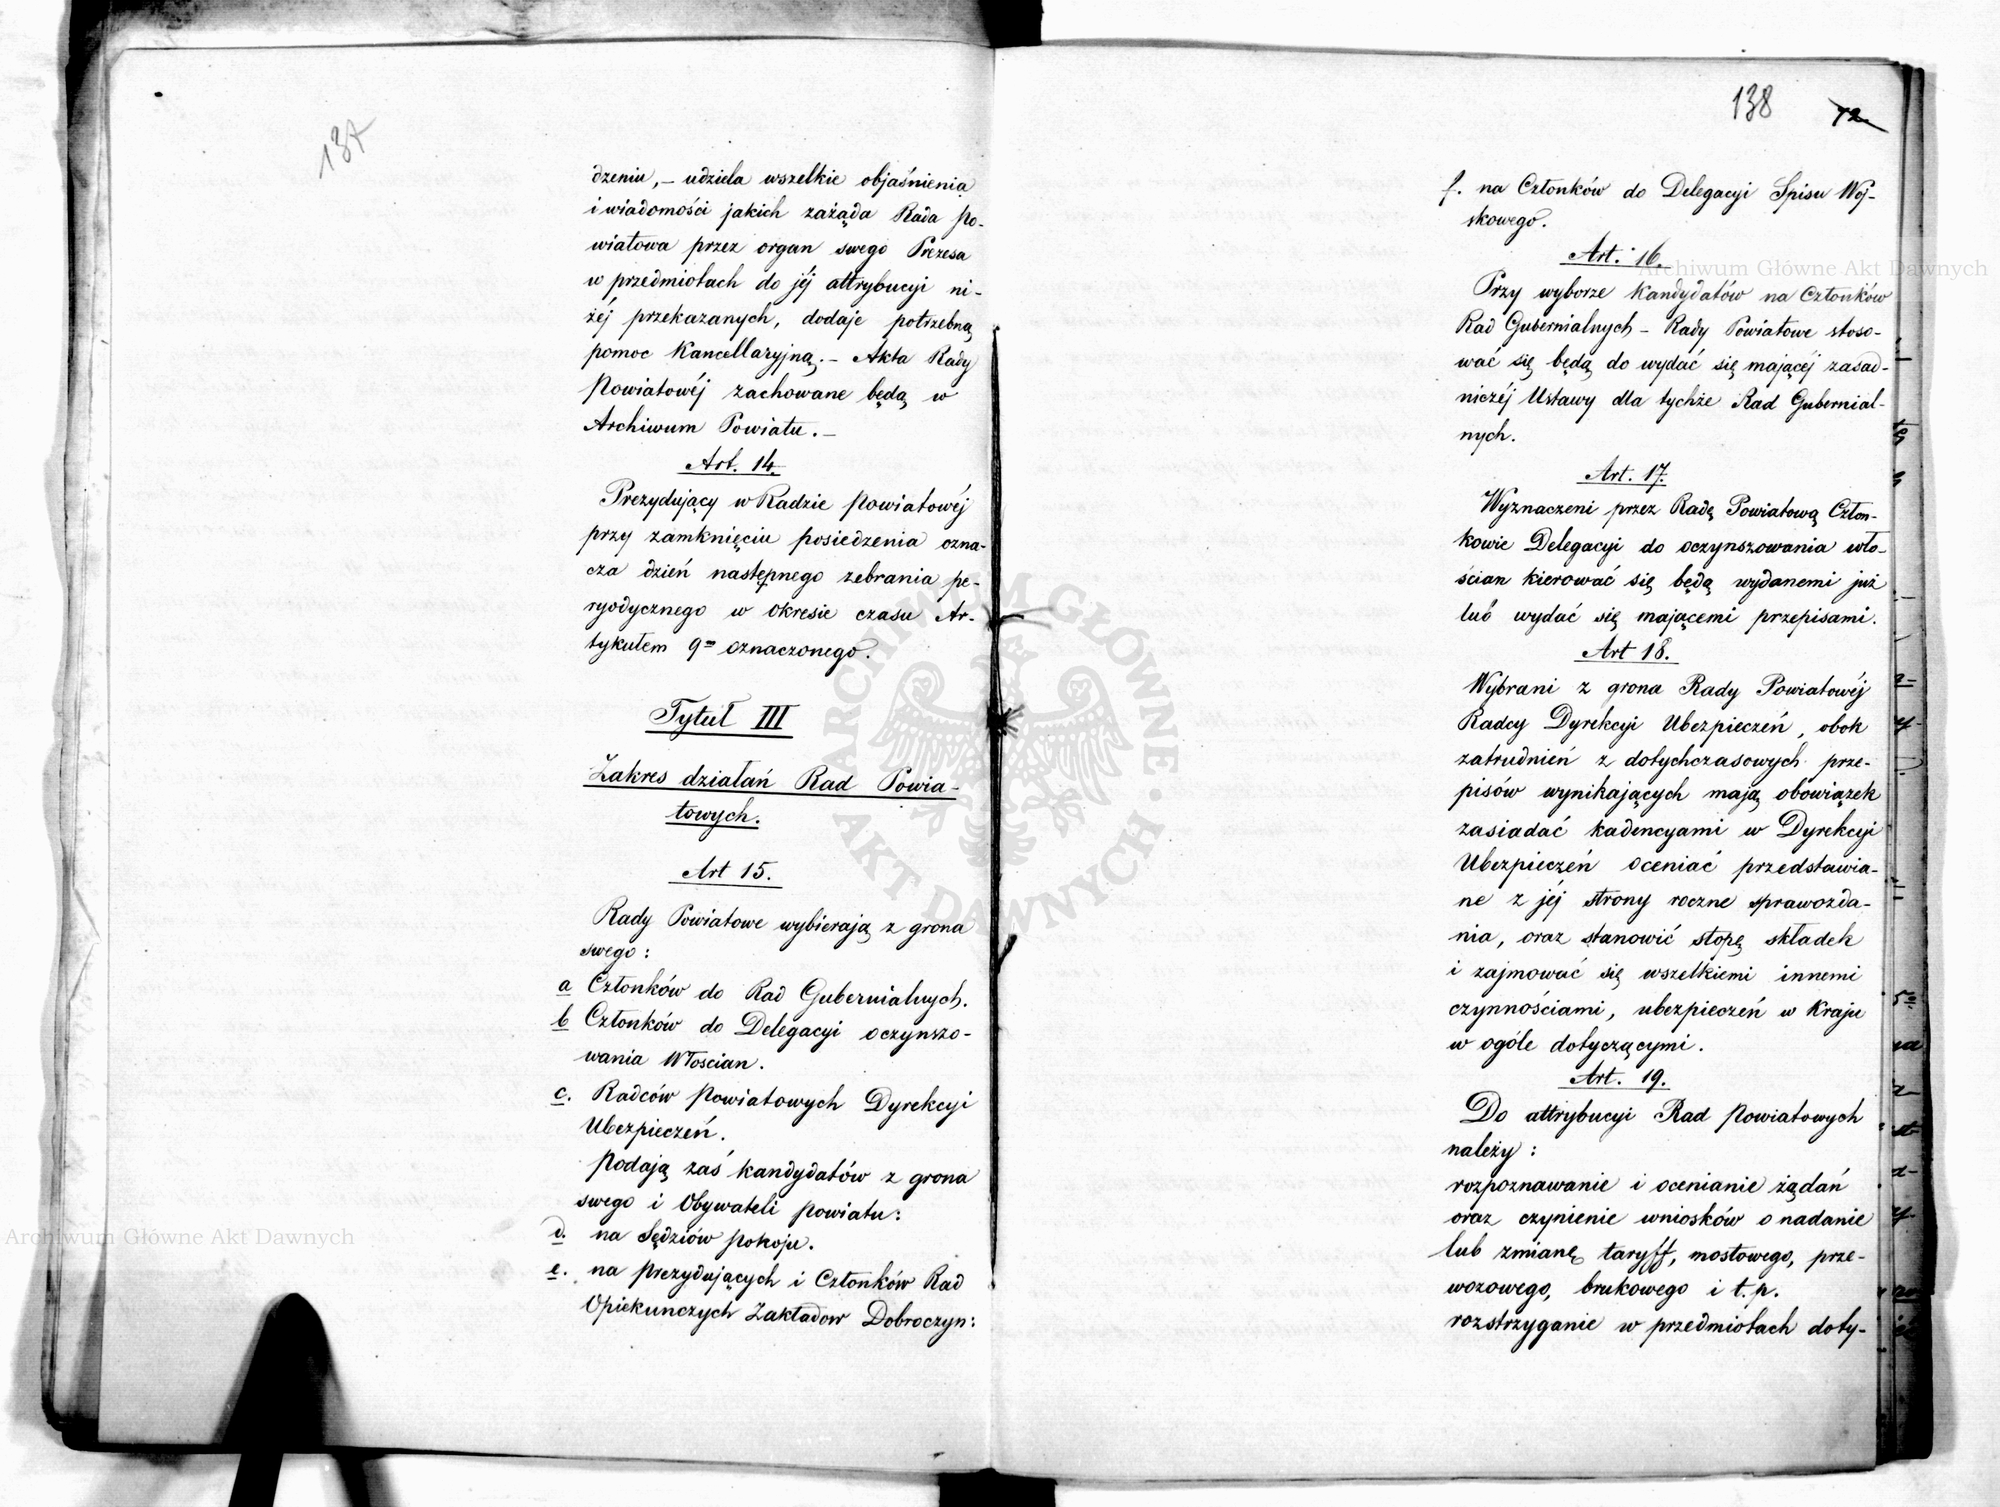 137
dzeniu, – udziela wszelkie objaśnienia
i wiadomości jakich zażąda Rada Po-
wiatowa przez organ swego Prezesa
w przedmiotach do jéj attrybucyi ni-
żéj przekazanych, dodaje potrzebną
pomoc Kancellaryjną. – Akta Rady
Powiatowéj zachowane będą w
Archiwum Powiatu. –
Art. 14.
Prezydujący w Radzie Powiatowéj
przy zamknięciu posiedzenia ozna-
cza dzień następnego zebrania pe-
ryodycznego w okresie czasu Ar-
tykułem 9m oznaczonego.
Tytuł III
Zakres działań Rad Powia-
towych.
Art 15.
Rady Powiatowe wybierają z grona
swego:
a Członków do Rad Gubernialnych.
b Członków do Delegacyi oczynszo-
wania Włoscian.
c. Radców Powiatowych Dyrekcyi
Ubezpieczeń.
Podają zaś kandydatów z grona
swego i Obywateli Powiatu:
d. na Sędziów pokoju.
e. na prezydujących i Członków Rad
Opiekunczych Zakładow Dobroczyn:
138
72
f. na Członków do Delegacyi Spisu Woj-
skowego.
Art. 16.
Przy wyborze Kandydatów na Członków
Rad Gubernialnych – Rady Powiatowe stoso-
wać się będą do wydać się mającéj zasad-
niczéj Ustawy dla tychże Rad Gubernial-
nych.
Art. 17.
Wyznaczeni przez Radę Powiatową Człon-
kowie Delegacyi do oczynszowania wło-
ścian kierować się będą wydanemi już
lub wydać się mającemi przepisami.
Art 18.
Wybrani z grona Rady Powiatowéj
Radcy Dyrekcyi Ubezpieczeń, obok
zatrudnień z dotychczasowych prze-
pisów wynikających mają obowiązek
zasiadać kadencyami w Dyrekcyi
Ubezpieczeń oceniać przedstawia-
ne z jéj strony roczne sprawozda-
nia, oraz stanowić stopę składek
i zajmować się wszelkiemi innemi
czynnościami, ubezpieczeń w Kraju
w ogóle dotyczącymi.
Art. 19.
Do attrybucyi Rad Powiatowych
należy:
rozpoznawanie i ocenianie żądań
oraz czynienie wniosków o nadanie
lub zmianę taryff, mostowego, prze-
wozowego, brukowego i t. p.
rozstrzyganie w przedmiotach doty-
Archiwum Główne Akt Dawnych
Archiwum Główne Akt Dawnych
ARCHIWUM GŁÓWNE AKT DAWNYCH